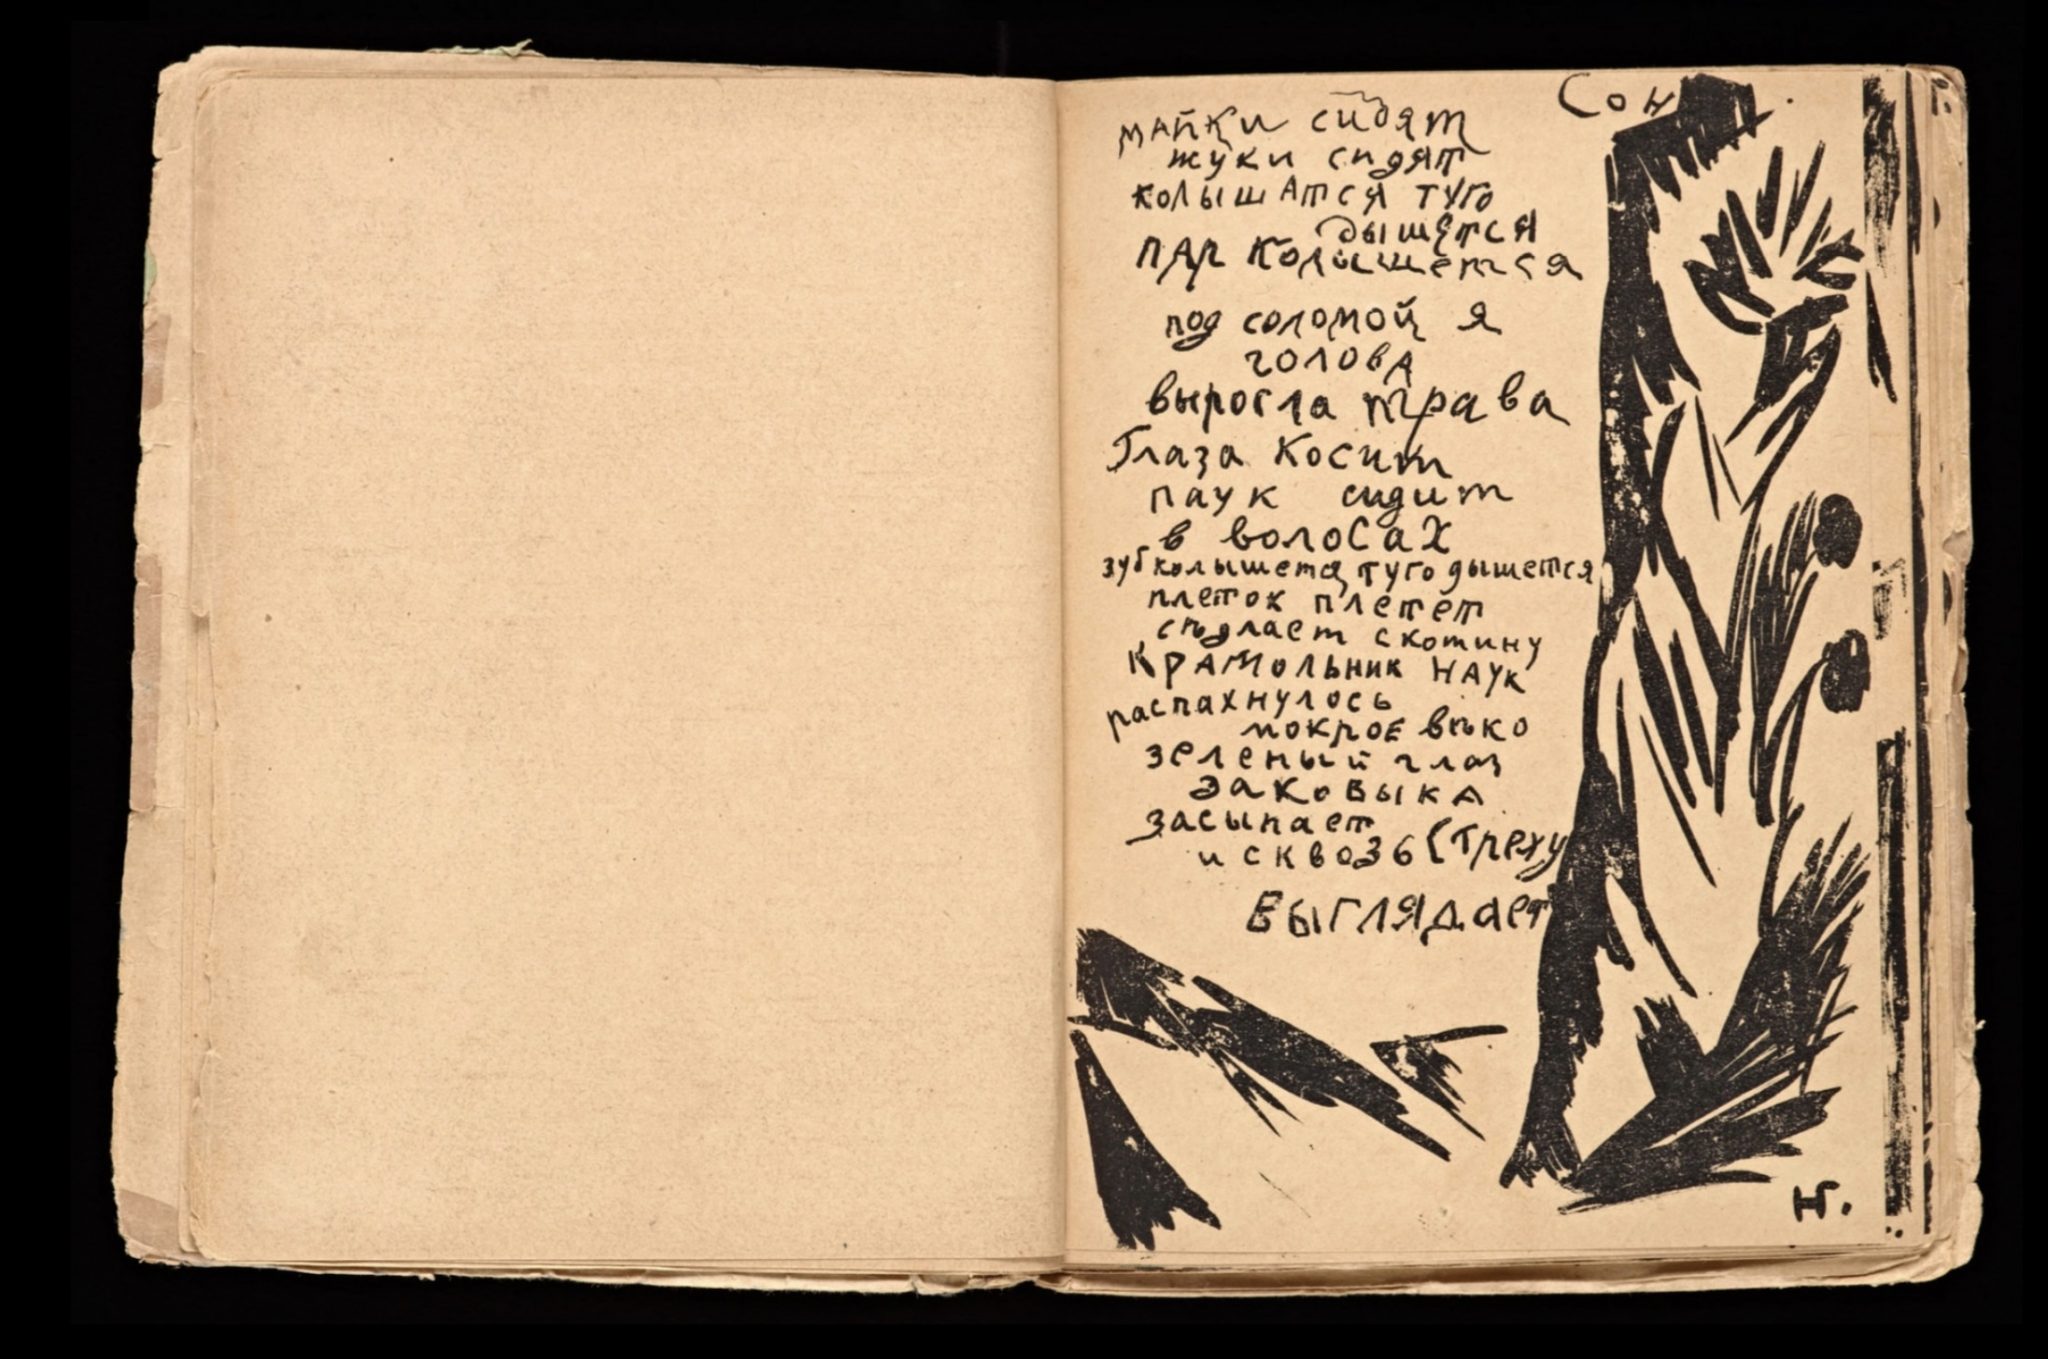 Сон
майки сидят
жуки сидят
колышатся туго
дышется
пар колышется
под соломой я
голова
выросла трава
Глаза косит
паук сидит
в волосах
зуб колышетя туго дышется
плеток плетет
съдлает скотину
Крамольник наук
распахнулось
мокрое вѣко
зеленый глаз
заковыка
засыпает
и сквозь (треху
выглядает
Н.